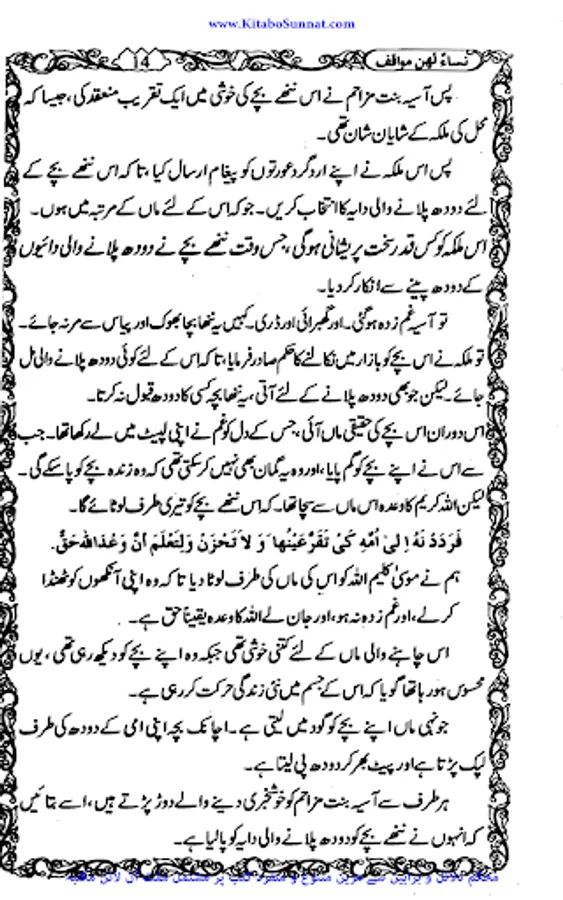 www.KitaboSunnat.com
نساءٌ لھن مواقف
14
پس آسیہ بنت مزاحم نے اس ننھے بچے کی خوشی میں ایک تقریب منعقد کی، جیسا کہ
محل کی ملکہ کے شایان شان تھی۔
پس اس ملکہ نے اپنے ارد گرد عورتوں کو پیغام ارسال کیا، تاکہ اس ننھے بچے کے
لئے دودھ پلانے والی دایہ کا انتخاب کریں۔ جو کہ اس کے لئے ماں کے مرتبہ میں ہوں۔
اس ملکہ کو کس قدر سخت پریشانی ہوگی، جس وقت ننھے بچے نے دودھ پلانے والی دائیوں
کے دودھ پینے سے انکار کر دیا۔
تو آسیہ غم زدہ ہوگئی۔ اور گھبرائی اور ڈری۔ کہیں یہ ننھا بچا بھوک اور پیاس سے مر نہ جائے۔
تو ملکہ نے اس بچے کو بازار میں نکالنے کا حکم صادر فرمایا، تاکہ اس کے لئے کوئی دودھ پلانے والی مل
جائے۔ لیکن جو بھی دودھ پلانے کے لئے آتی، یہ ننھا بچہ کسی کا دودھ قبول نہ کرتا۔
اس دوران اس بچے کی حقیقی ماں آئی، جس کے دل کو غم نے اپنی لپیٹ میں لے رکھا تھا۔ جب
سے اس نے اپنے بچے کو گم پایا، اور وہ یہ گمان بھی نہیں کر سکتی تھی کہ وہ زندہ بچے کو پا سکے گی۔
لیکن اللہ کریم کا وعدہ اس ماں سے سچا تھا۔ کہ اس ننھے بچے کو تیری طرف لوٹائے گا۔
فَرَدَدْ نٰهُ اِلیٰ اُمِّهٖ کَیْ تَقَرَّعَیْنُها وَ لَا تَحْزَنْ وَلِتَعْلَمَ اَنَّ وَعْدَ اللهِ حَقٌّ.
ہم نے موسیٰ کلیم اللہ کو اس کی ماں کی طرف لوٹا دیا تاکہ وہ اپنی آنکھوں کو ٹھنڈا
کر لے، اور غم زدہ نہ ہو، اور جان لے اللہ کا وعدہ یقیناً حق ہے۔
اس چاہنے والی ماں کے لئے کتنی خوشی تھی جبکہ وہ اپنے بچے کو دیکھ رہی تھی، یوں
محسوس ہو رہا تھا گویا کہ اس کے جسم میں نئی زندگی حرکت کر رہی ہے۔
جونہی ماں اپنے بچے کو گود میں لیتی ہے۔ اچانک بچہ اپنی امی کے دودھ کی طرف
لپک پڑتا ہے اور پیٹ بھر کر دودھ پی لیتا ہے۔
ہر طرف سے آسیہ بنت مزاحم کو خوشخبری دینے والے دوڑ پڑتے ہیں، اسے بتائیں
کہ انہوں نے ننھے بچے کو دودھ پلانے والی دایہ کو پا لیا ہے۔
محکم دلائل و براہین سے مزین متنوع و منفرد کتب پر مشتمل مفت آن لائن مکتبہ